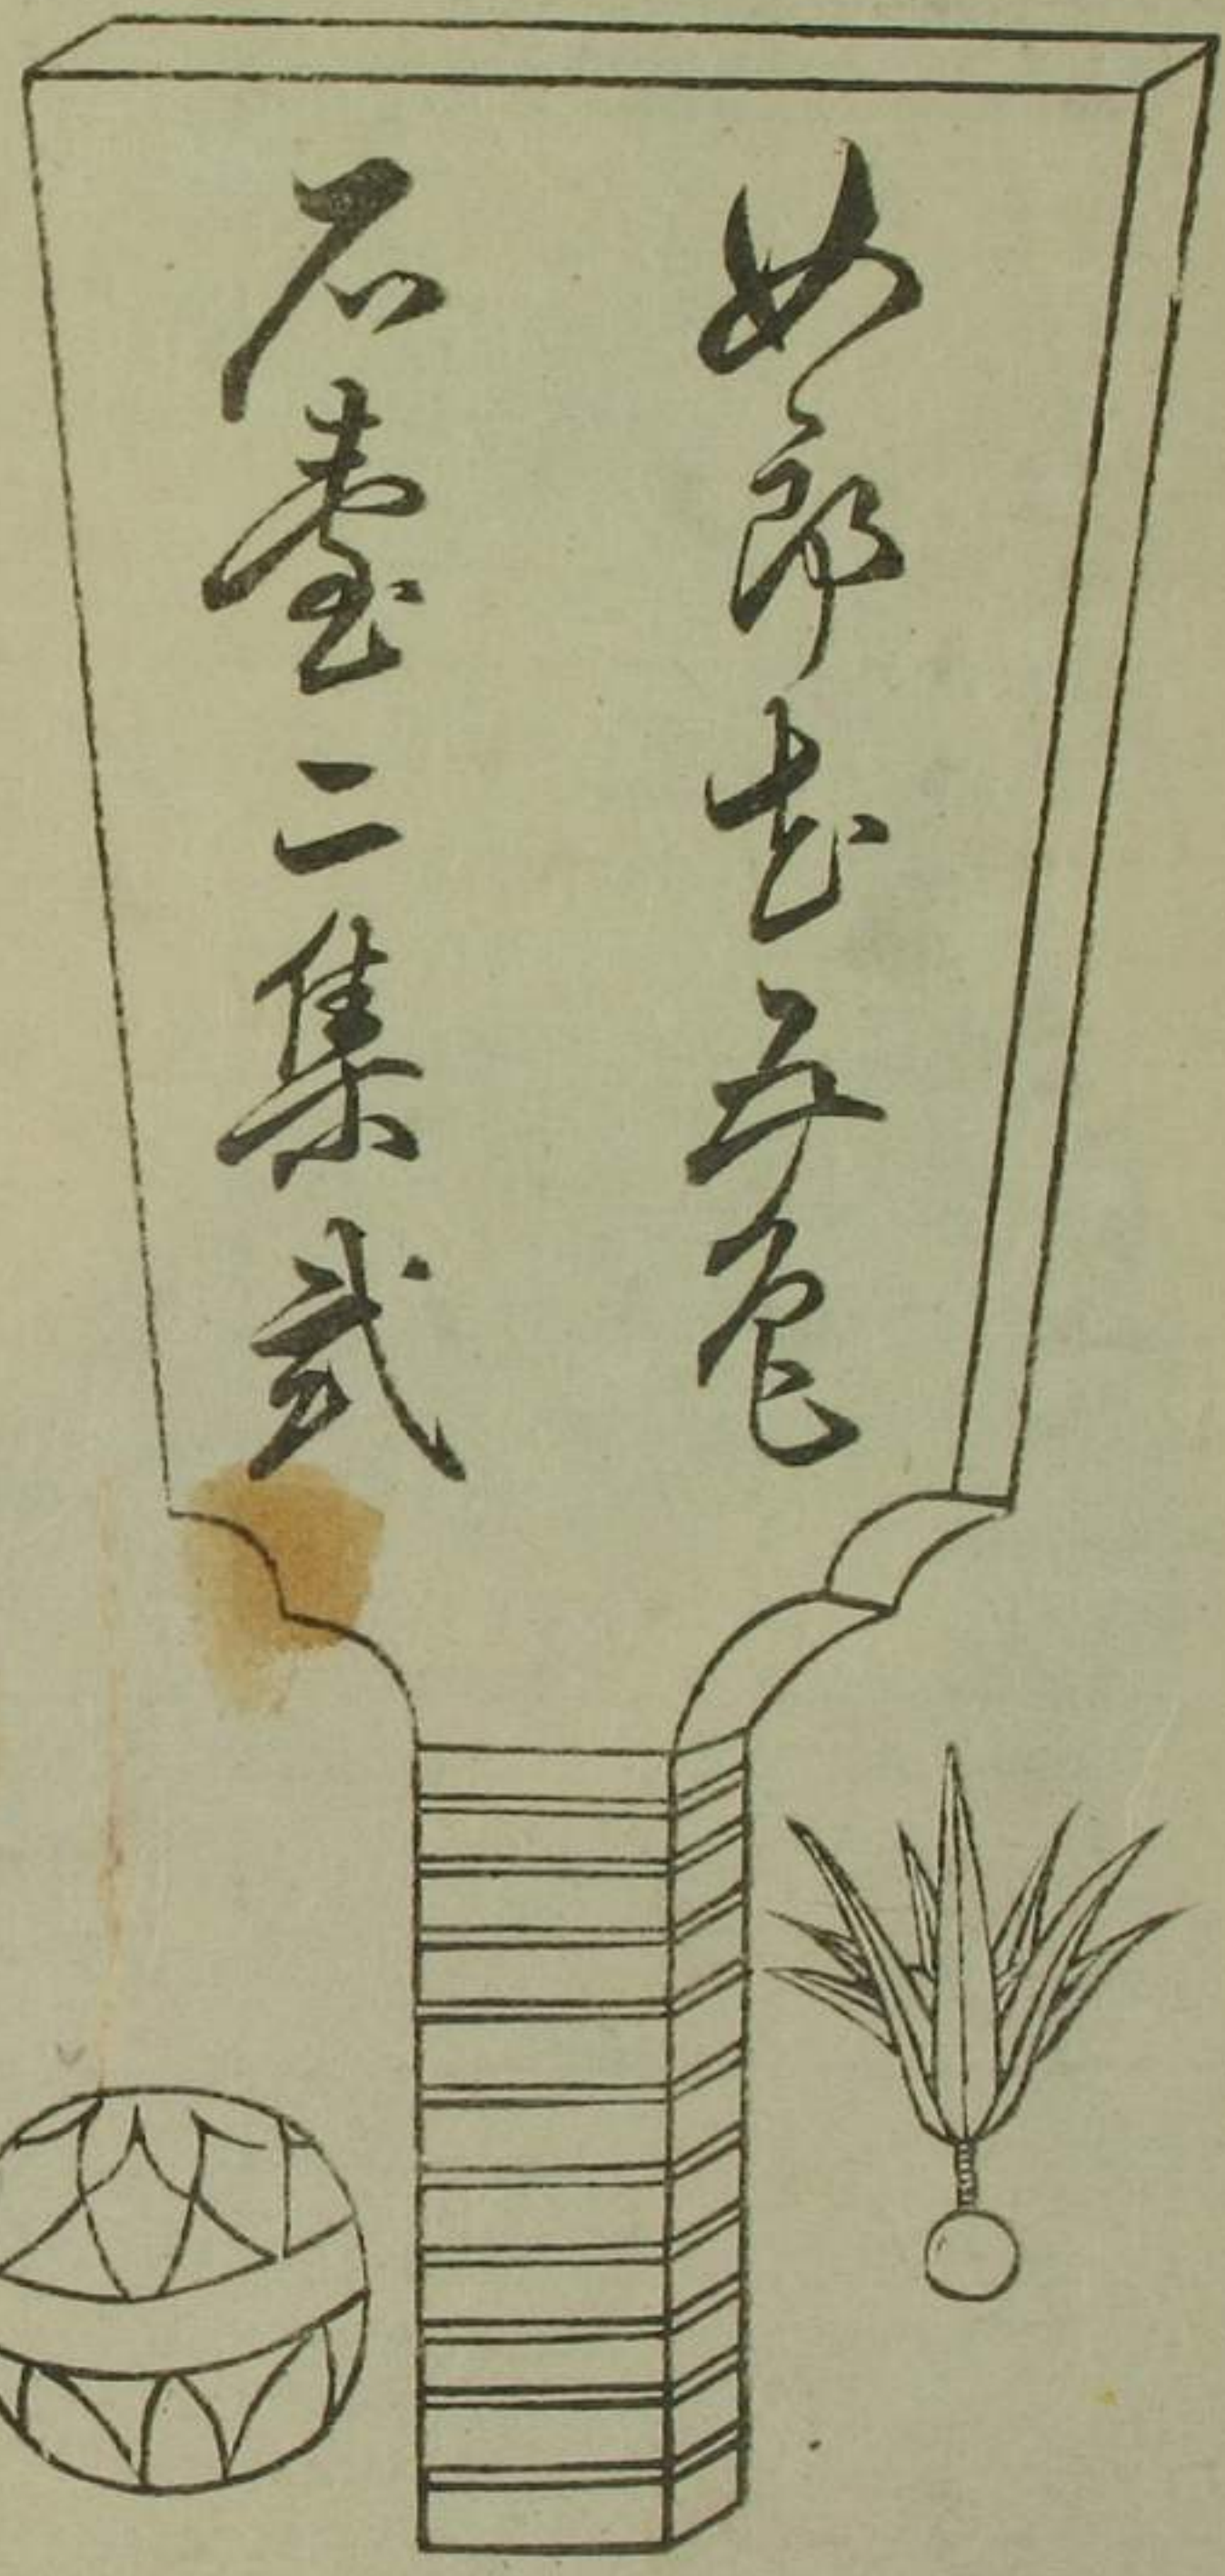 女郎花五色
石臺二集弐